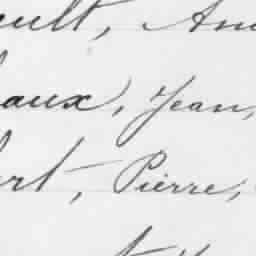 ault, An
aux, Jean,
ert, Pierre,